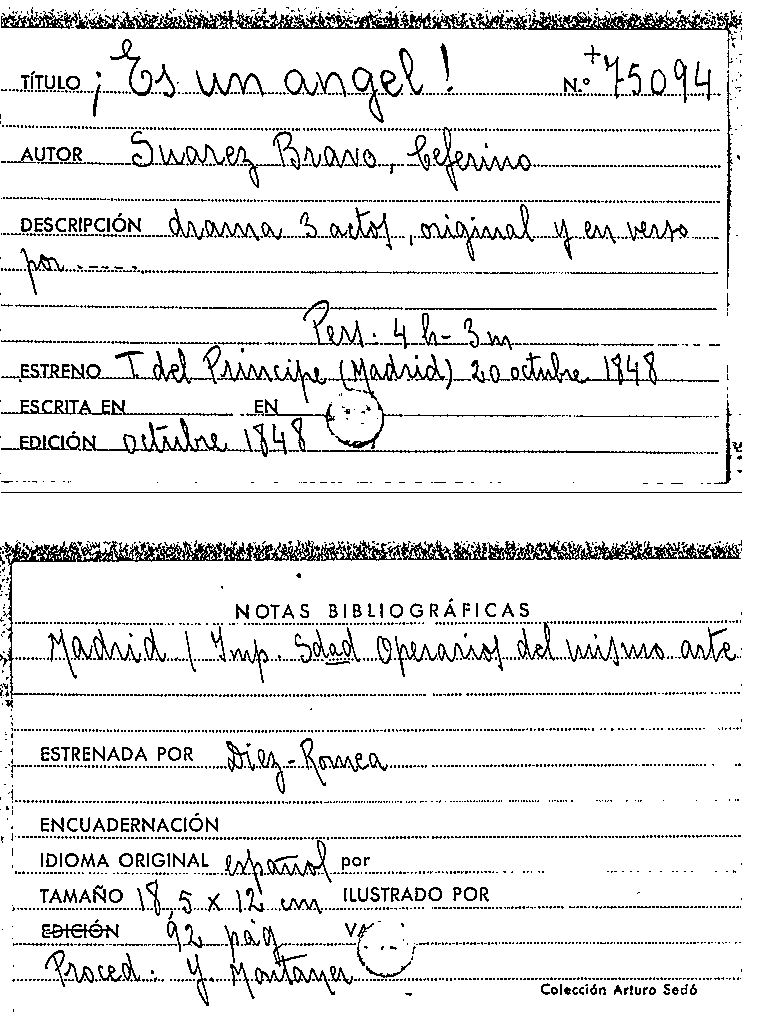 TÍTULO ¡Es un angel! N.º +75094
AUTOR Suarez Bravo, Ceferino
DESCRIPCIÓN drama 3 actos, original y en verso
por -----
Pers. 4 h - 3 m
ESTRENO T. del Principe (Madrid) 20 octubre 1848
ESCRITA EN EN
EDICIÓN octubre 1848
NOTAS BIBLIOGRÁFICAS
Madrid / Imp. Sdad Operarios del mismo arte
ESTRENADA POR Diez-Romea
ENCUADERNACIÓN
IDIOMA ORIGINAL español por
TAMAÑO 18,5 x 12 cm ILUSTRADO POR
EDICIÓN 92 pág
Proced: Y. Montaner
Colección Arturo Sedó